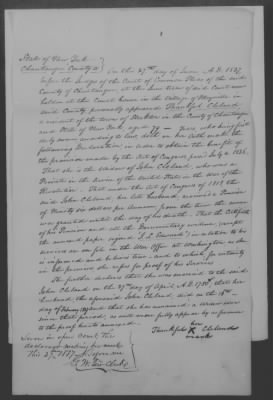 State of New York
Chautauque County ss
On this 27th day of June A.D. 1837
before the Judges of the Court of Common Pleas of the said
County of Chautauque, at the June term of said Court now
held at the Court house in the Village of Mayville in
said County personally appeared Thankful Cleland
a resident of the town of in the County of Chautauque
and State of New York aged 74 years who being first
duly sworn according to law, doth on her oath make the
following Declaration in order to obtain the benefit of
the provision made by the Act of Congress passed July 4. 1836.
That she is the Widow of John Cleland, who was a
Private in the Service of the United States in the War of the
Revolution. That under the Act of Congress of 1818 the
said John Cleland her late husband, received a Pension
of Ninety six dollars per Annum, from the time the same
was granted until the day of his death. That the Certificate
of his Pension and all the Documentary evidence (except
the annexed paper signed ) in relation to his
services are on file in the War Office at Washington as she
is informed and believes true and to which for certainty
in the premises she refers for proof of his Services
She further declares that she was married to the said
John Cleland on the 27th day of April, A.D. 1780, that her
husband, the aforesaid John Cleland, died on the
day of and that she has remained a widow ever
since that period, as will more fully appear by reference
to the proof hereto annexed.
Thankful her X mark Cleland
Sworn in open Court the
day
This 27th 1837 before me
Clerk